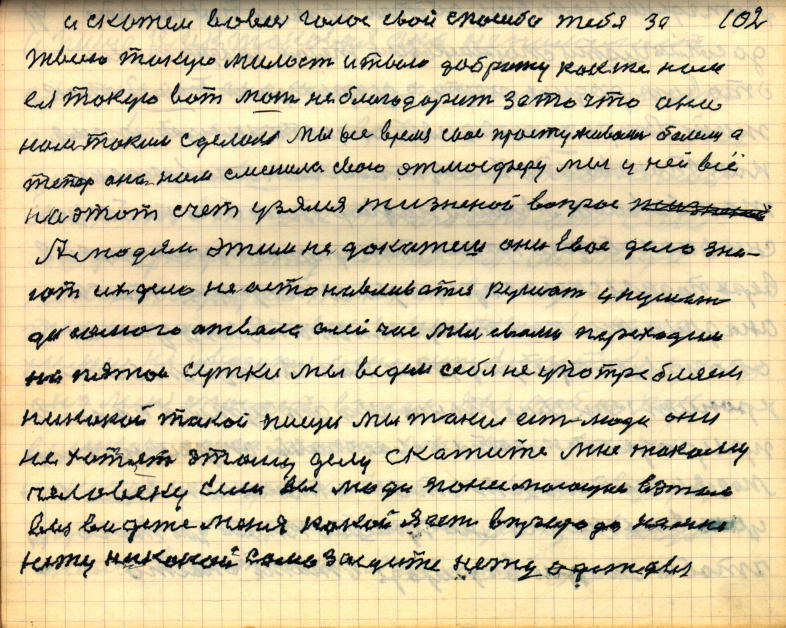 и скажем вовесь голос свой спасиба тебя за 102
твою такую милост и твою доброту как же нам
ей такую вот мат не благодарит за то что она
нам таким сделала мы все время свае простуживали болели а
тепер она нам сменила свою атмосферу мы у ней всё
на этот счет узялися жизненой вопрос жизненой
А людям этим не докажеш они свое дело зна-
ют их дело не астонавливатся кушат и кушат
до самого отвала а сейчас мы сваими переходим
на пятои сутки мы ведем себя не употребляем
никакой такой пищи мы такии ест люди они
не хотят этому делу скажите мне такому
человеку если вы люди понемающие в этом
вы видете меня какой я ест впереди на мне
нету никакой само защите нету одежды